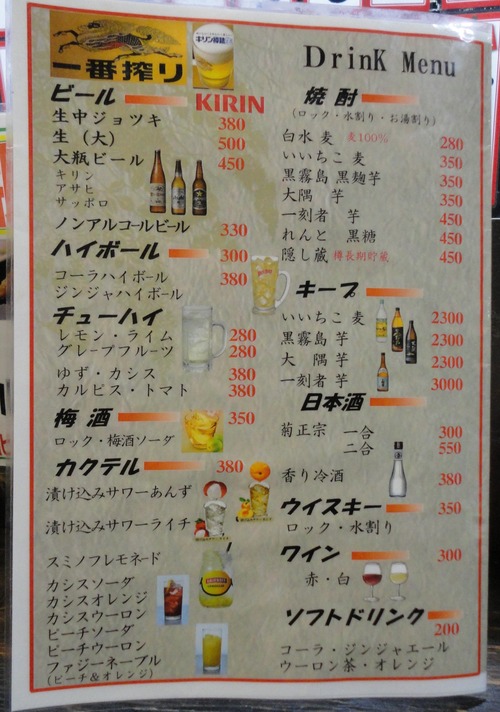 一番搾り
キリン一番搾り
Drink Menu
ビール KIRIN
生中ジョツキ 380
生(大) 500
大瓶ビール 450
キリン
アサヒ
サッポロ
ノンアルコールビール 330
ハイボール 300
コーラハイボール 380
ジンジャハイボール
チューハイ
レモン・ライム 280
グレープフルーツ 280
ゆず・カシス 380
カルピス・トマト 380
梅酒 350
ロック・梅酒ソーダ
カクテル 380
漬け込みサワーあんず
漬け込みサワーライチ
スミノフレモネード
カシスソーダ
カシスオレンジ
カシスウーロン
ピーチソーダ
ピーチウーロン
ファジーネーブル
(ピーチ&オレンジ)
焼酎
(ロック・水割り・お湯割り)
白水 麦 麦100% 280
いいちこ 麦 350
黒霧島 黒麹芋 350
大隅 芋 350
一刻者 芋 450
れんと 黒糖 450
隠し蔵 樽長期貯蔵 450
キープ
いいちこ 麦 2300
黒霧島 芋 2300
大 隅 芋 2300
一刻者 芋 3000
日本酒
菊正宗 一合 300
二合 550
香り冷酒 380
ウイスキー 350
ロック・水割り
ワイン 300
赤・白
ソフトドリンク
200
コーラ・ジンジャエール
ウーロン茶・オレンジ